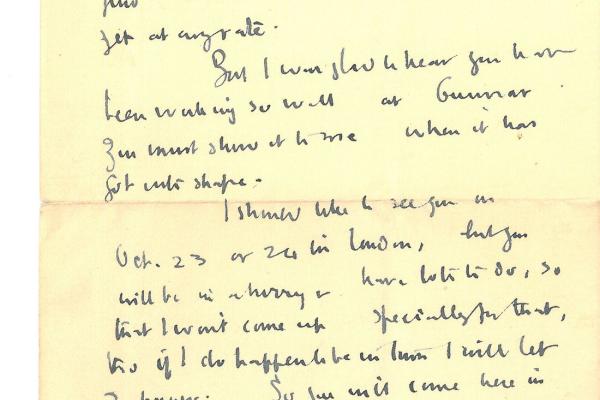 yet at any rate.
But I was glad to hear you have
been working so well at Gunnar
You must show it to me when it has
got into shape.
I should like to see you on
Oct. 23 or 24 in London, but you
will be in a hurry & have lots to do, so
that I won't come up specially for that,
tho if I do happen to be in town I will let
So you will come here in